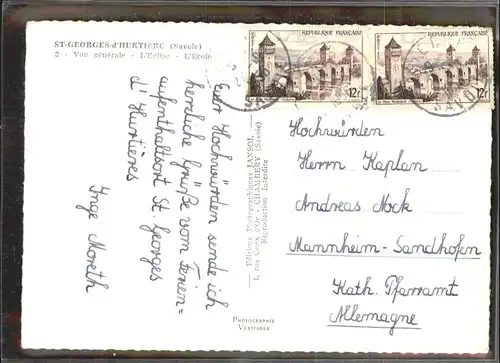 ST-GEORGES-d'HURTIÈRE (Savoie)
2 - Vue générale - L'Eglise - L'Ecole
RÉPUBLIQUE FRANÇAISE
12F
RÉPUBLIQUE FRANÇAISE
12F
Euer Hochwürden sende ich
herzliche Grüße vom Ferien=
aufenthaltsort St. Georges
d' Hurtières
Inge Moreth
Editions Photographiques JANSOL
1, rue Croix d'Or - CHAMBÉRY (Savoie)
Reproduction Interdite
PHOTOGRAPHIE
VÉRITABLE
Hochwürden
Herrn Kaplan
Andreas Nock
Mannheim-Sandhofen
Kath. Pfarramt
Allemagne